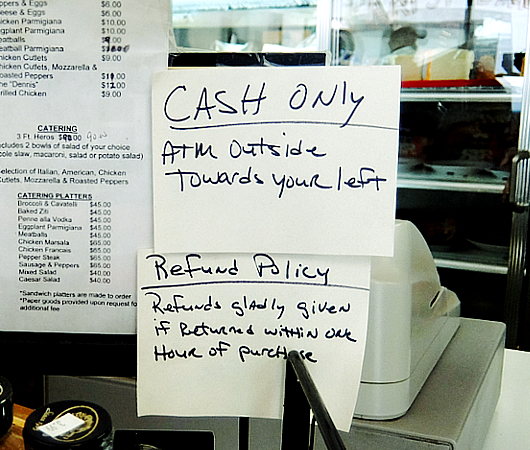 ppers & Eggs $6.00
eese & Eggs $6.00
icken Parmigiana $10.00
ggplant Parmigiana $10.00
eatballs
eatball Parmigiana
hicken Cutlets $9.00
hicken Cutlets, Mozzarella &
oasted Peppers
he "Dennis"
rilled Chicken $9.00
CATERING
3 Ft. Heros
cludes 2 bowls of salad of your choice
cole slaw, macaroni, salad or potato salad)
election of Italian, American, Chicken
Cutlets, Mozzarella & Roasted Peppers
CATERING PLATTERS
Broccoli & Cavatelli $45.00
Baked Ziti $40.00
Penne alla Vodka $45.00
Eggplant Parmigiana $45.00
Meatballs $45.00
Chicken Marsala $65.00
Chicken Francais $65.00
Pepper Steak $65.00
Sausage & Peppers $65.00
Mixed Salad $40.00
Caesar Salad $40.00
*Sandwich platters are made to order
*Paper goods provided upon request fo
additional fee
CASH ONLY
ATM Outside
Towards your left
Refund Policy
Refunds gladly given
if Returned within one
Hour of purchase